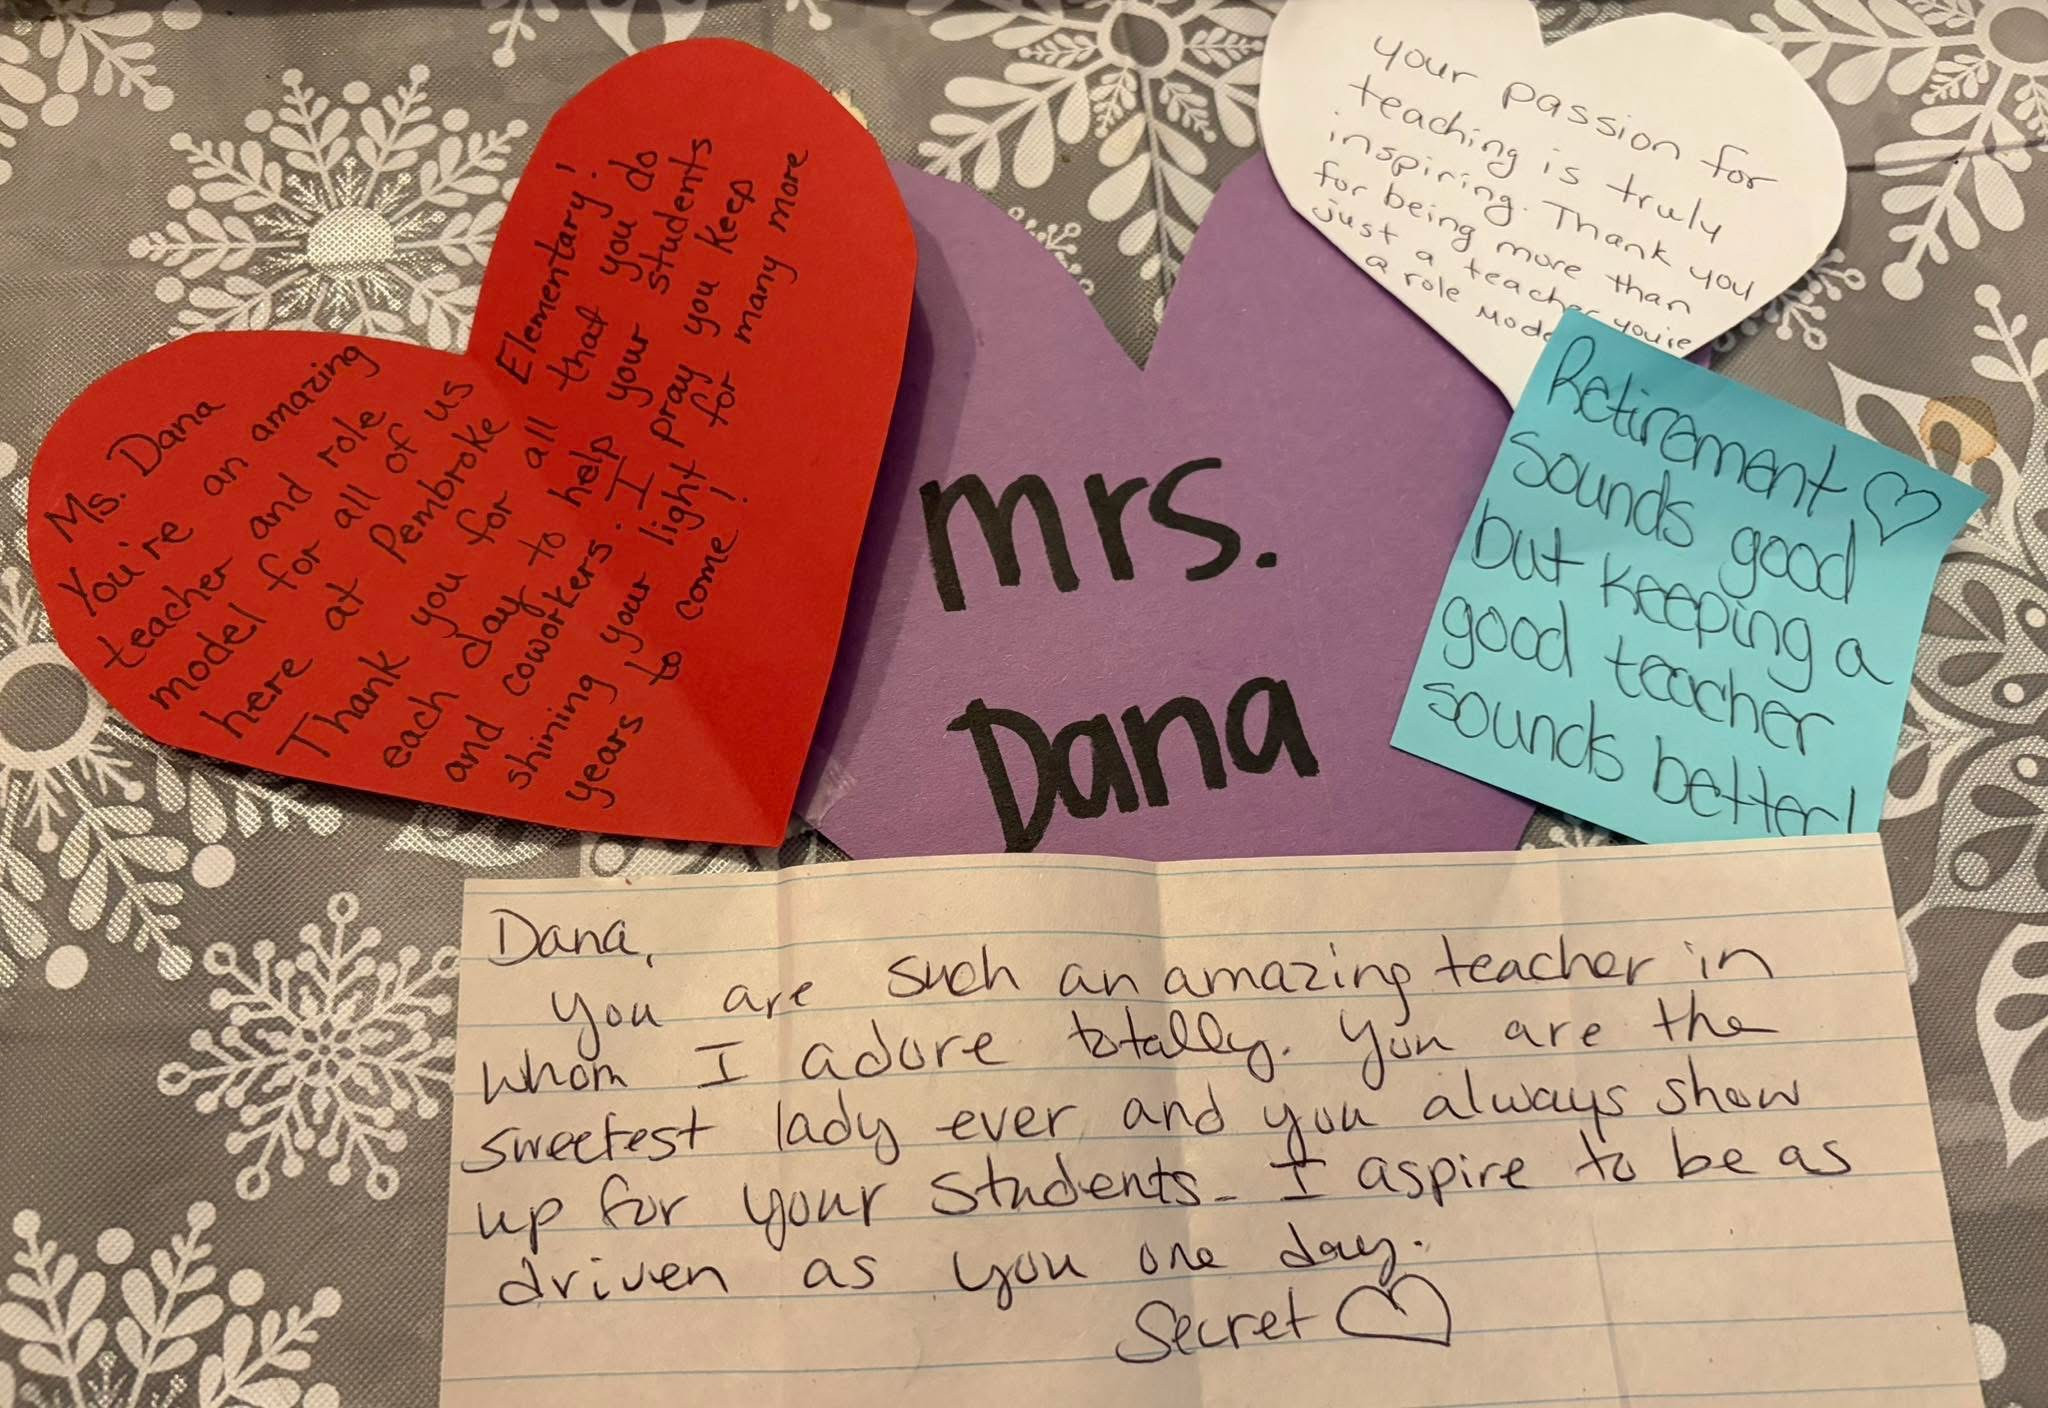 Ms. Dana
You're an amazing
teacher and role
model for all of us
here at Pembroke Elementary!
Thank you for all that you do
each day to help your students
and coworkers. I pray you keep
shining your light for many more
years to come!
mrs.
Dana
your passion for
teaching is truly
inspiring. Thank you
for being more than
just a teacher you're
a role mode
Retirement ♡
sounds good
but keeping a
good teacher
sounds better!
Dana,
You are such an amazing teacher in
whom I adore totally. You are the
sweetest lady ever and you always show
up for your students. I aspire to be as
driven as you one day.
Secret ♡